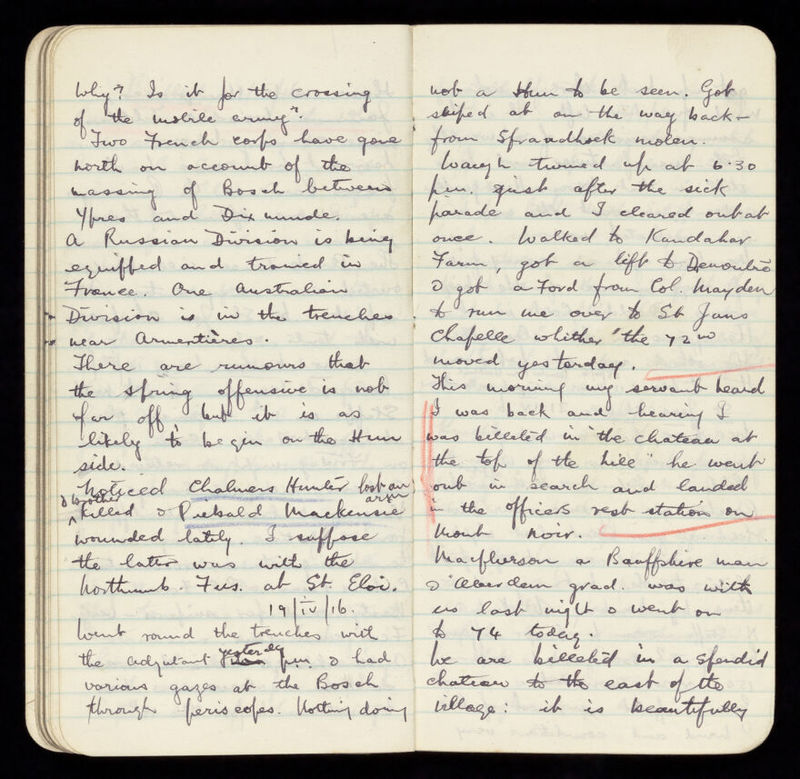 Why? Is it for the crossing
of "the mobile army"?
Two French corps have gone
north on account of the
massing of Bosch between
Ypres and Dixmude.
A Russian Division is being
equipped and trained in
France. One Australian
Division is in the trenches
near Armentières.
There are rumours that
the spring offensive is not
far off, but it is as
likely to begin on the Hun
side.
Noticed Chalmers Hunter lost an arm
& brother
killed & Piebald Mackenzie
wounded lately. I suppose
the latter was with the
Northumb. Fus. at St. Eloi.
19/IV/16.
Went round the trenches with
the adjutant yesterday p.m. & had
various gazes at the Bosch
through periscopes. Nothing doing
not a Hun to be seen. Got
sniped at on the way back –
from Spraandhoek molen.
Waugh turned up at 6.30
p.m. just after the sick
parade and I cleared out at
once. Walked to Kandahar
Farm, got a lift to
& got a Ford from Col. Mayden
to run me over to St Jans
Chapelle whither the 72nd
moved yesterday.
This morning my servant heard
I was back and hearing I
was billeted in "the chateau at
the top of the hill" he went
out in search and landed
in the officers rest station on
Mont Noir.
Macpherson a Banffshire man
& Aberdeen grad. was with
us last night & went on
to 74 today.
We are billeted in a splendid
chateau to the east of the
village: it is beautifully